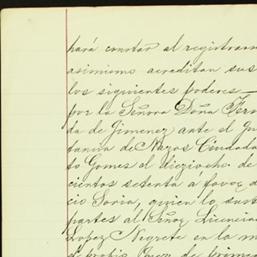 hará constar al registrarse
asimismo acreditan sus
los siguientes poderes
por la Señora Doña Fer
da de Gimenez ante el
tancia de Ciudada
to Gomes el dieziocho de
cientos setenta á favor d
cio Soria, quien lo sust
partes al Señor Licencia
Lopez Negrete en la m